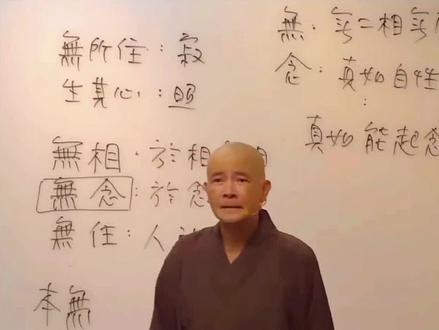 無所住：寂
生其心：照
無相：於相
無念：於念
無住：人
本無
無：無二相無
念：真如自性
：
真如能起念